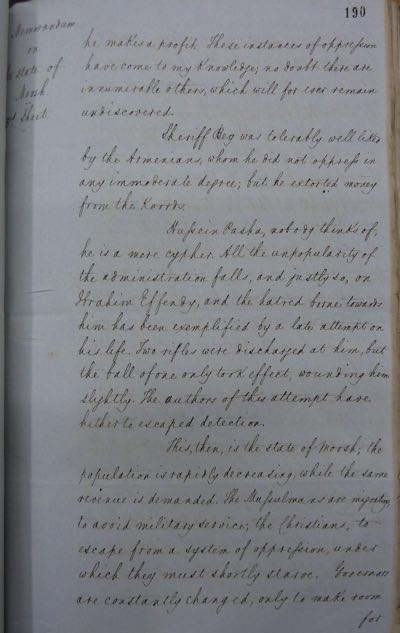 190
Memorandum
on
state of
Moosh
he makes a profit. These instances of oppression
have come to my Knowledge; no doubt there are
innumerable others, which will for ever remain
undiscovered.
Sheriff Bey was tolerably well liked
by the Armenians, whom he did not oppress in
any immoderate degree; but he extorted money
from the Koords.
Hussein Pasha, nobody thinks of,
he is a mere cypher. All the unpopularity of
the administration falls, and justly so, on
Ibrahim Effendy, and the hatred borne towards
him has been exemplified by a late attempt on
his life. Two rifles were discharged at him, but
the ball of one only took effect, wounding him
slightly. The authors of this attempt have
hitherto escaped detection.
This, then, is the state of Moosh; the
population is rapidly decreasing, while the same
revenue is demanded. The Mussulmans are migrating
to avoid military service; the Christians, to
escape from a system of oppression, under
which they must shortly starve. Governors
are constantly changed, only to make room
for